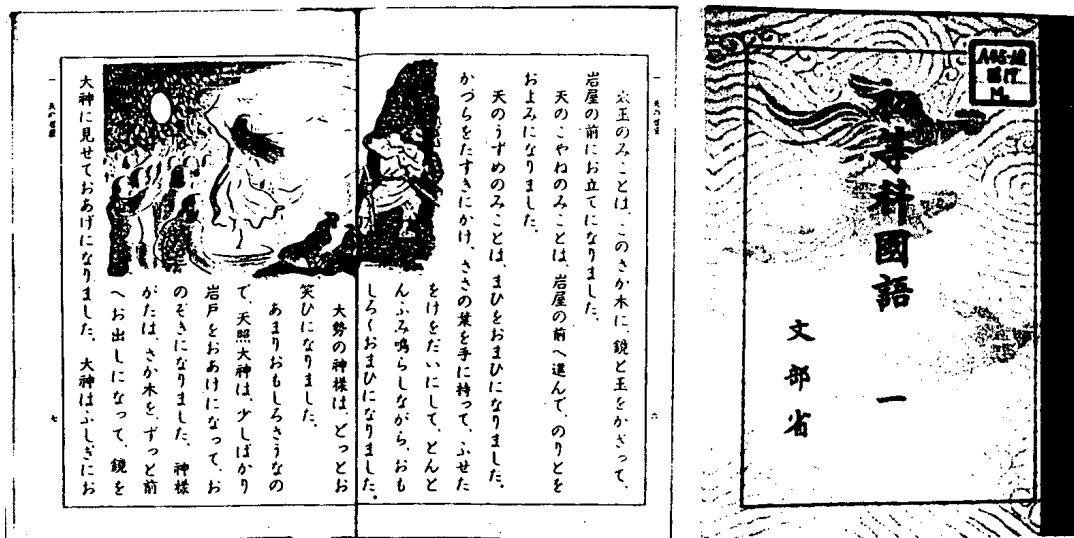 一 天の岩屋
太玉のみことは、このさか木に、鏡と玉をかざって、
岩屋の前にお立てになりました。
天のこやねのみことは、岩屋の前へ進んで、のりとを
およみになりました。
天のうずめのみことは、まひをおまひになりました。
かづらをたすきにかけ、ささの葉を手に持って、ふせた
をけをだいにして、とんと
んふみ鳴らしながら、おも
しろくおまひになりました。
六
大勢の神様は、どっとお
笑ひになりました。
あまりおもしろさうなの
で、天照大神は、少しばかり
岩戸をおあけになって、お
のぞきになりました。神様
がたは、さか木を、ずっと前
へお出しになって、鏡を
大神に見せておあげになりました。大神はふしぎにお
一 天の岩屋
七
初等科國語 一
文部省